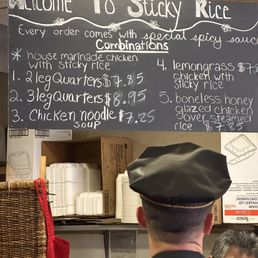 Welcome To Sticky Rice
Every order comes with special spicy sauce
Combinations
* house marinade chicken
with sticky rice
1. 2 leg Quarters $7.85
2. 3 leg Quarters $8.95
3. Chicken noodle $7.25
soup
4. lemongrass $7.8
chicken with
sticky rice
5. boneless honey
glazed chicken
over steamed
rice $7.85